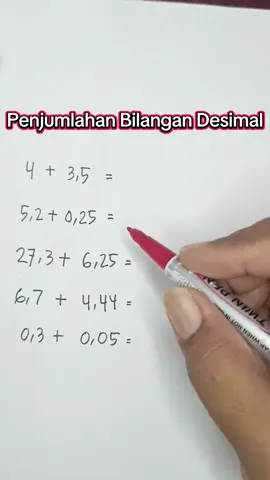 Penjumlahan Bilangan Desimal
4 + 3,5 =
5,2 + 0,25 =
27,3 + 6,25 =
6,7 + 4,44 =
0,3 + 0,05 =